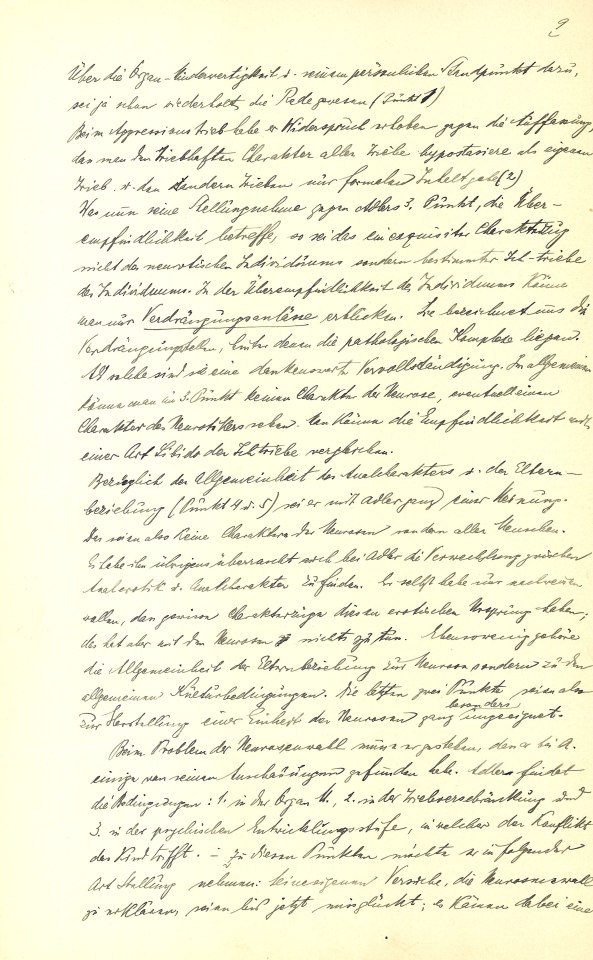 9
Über die Organ-Minderwertigkeit u. seinem persönlichen Standpunkt dazu,
sei ja schon wiederholt die Rede gewesen (Punkt 1)
Beim Aggressionstrieb habe er Widerspruch erhoben gegen die Auffassung,
das man den triebhaften Charakter aller Triebe hypostasiere als eigenen
Trieb u. den andern Trieben nur formalen Inhalt gebe (2)
Was nun seine Stellungnahme gegen Adlers 3. Punkt, die Über-
empfindlichkeit betreffe, so sei das ein exquisiter Charakterzug
nicht des neurotischen Individuums sondern bestimmter Ich-triebe
des Individuums. In der Überempfindlichkeit des Individuums könne
man nur Verdrängungsanlässe erblicken. Sie bezeichnet uns die
Verdrängungsstellen, hinter denen die pathologischen Komplexe liegen.
Als solche sind sie eine dankenswerte Vervollständigung. Im allgemeinen
könne man im 3. Punkt keinen Charakter der Neurose, eventuell einen
Charakter des Neurotikers sehen. Man könne die Empfindlichkeit mit
einer Art Libido der Ichtriebe vergleichen.
Bezüglich der Allgemeinheit des Analcharakters u. der Eltern-
beziehung (Punkt 4 u. 5) sei er mit Adler ganz einer Meinung.
Das seien also keine Charaktere der Neurosen sondern aller Menschen.
Es habe ihn übrigens überrascht auch bei Adler die Verwechslung zwischen
Analerotik u. Analcharakter zu finden. Er selbst habe nur nachweisen
wollen, dass gewisse Charakterzüge diesen erotischen Ursprung haben;
das hat aber mit den Neurosen nichts zu tun. Ebensowenig gehöre
die Allgemeinheit der Elternbeziehung zur Neurose sondern zu den
allgemeinen Kulturbedingungen. Die letzten zwei Punkte seien also
zur Herstellung einer Einheit der Neurosen ganz besonders ungeeignet.
Beim Problem der Neurosenwahl müsse er gestehen, dass er bei A.
einige von seinen Anschauungen gefunden habe. Adler findet
die Bedingungen: 1. in der Organ M., 2. in der Triebverschränkung und
3. in der psychischen Entwicklungsstufe, in welcher der Konflikt
das Kind trifft. – Zu diesen Punkten möchte er in folgender
Art Stellung nehmen: seine eigenen Versuche, die Neurosenwahl
zu erklären, seien bis jetzt missglückt; es kämen dabei eine